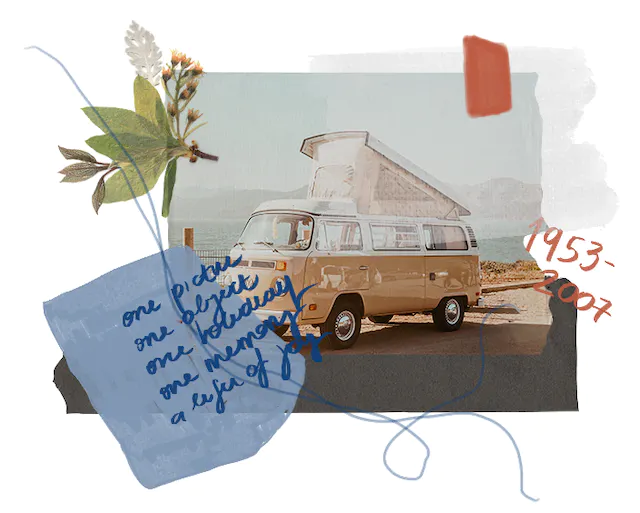 one picture
one object
one holiday
one memory
a life of joy
1953-
2007